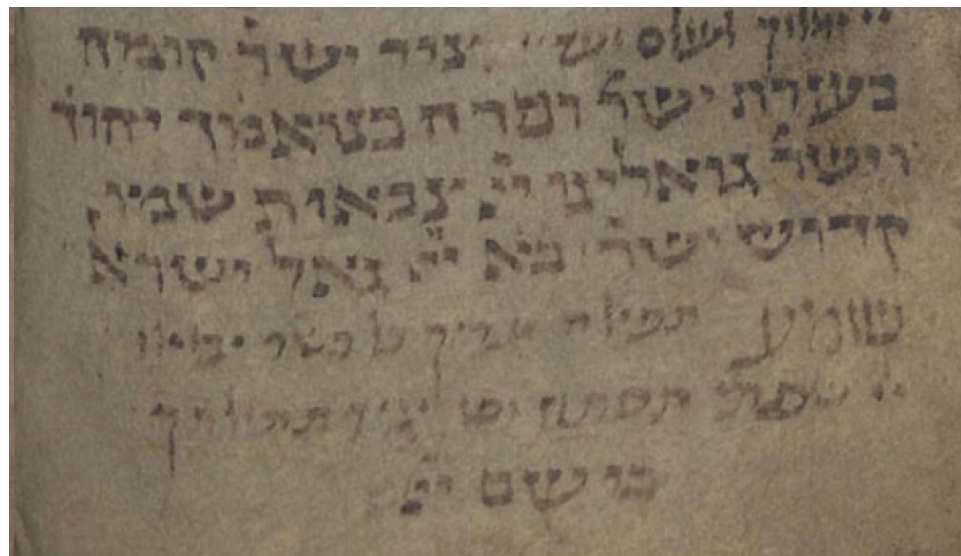 ייי ימלוך לעולם ועד צור ישר' קומה
בעזרת ישר' ופדה כנאמך יהוד
וישר' גואלינו ייי צבאות שמו
קדוש ישר' בא ייי גאל ישרא
שומע תפלה עדיך כל בשר יבואו
ייי שפתי תפתח ופי יגיד תהלתך
כי שם ייי